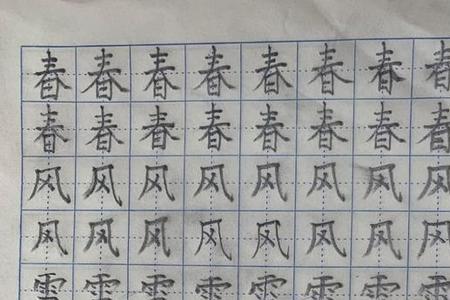 春春春春春春春春
春春春春春春春春
风风风风风风风风
风风风风风风风风